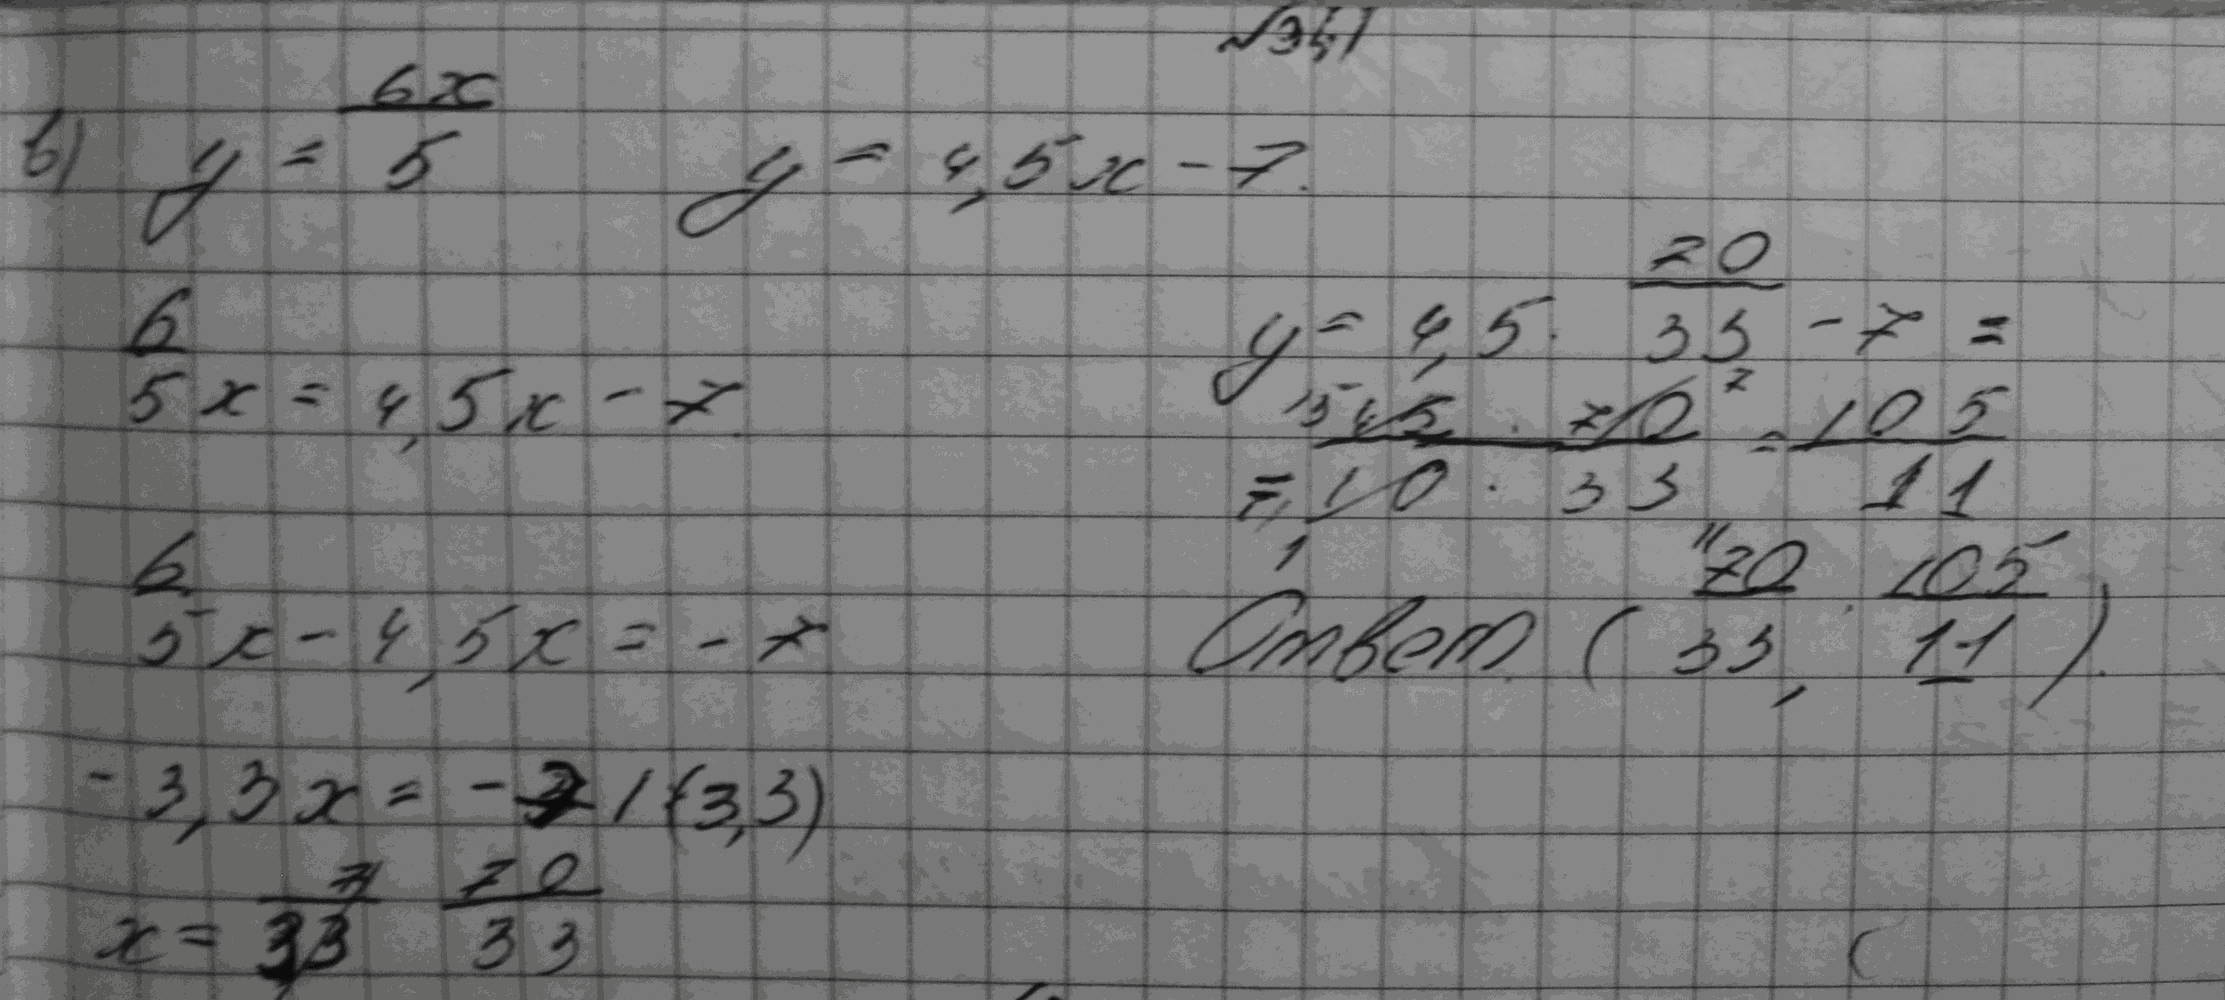 №341
в) y = 6x/5 y = 4,5x - 7.
6/5 x = 4,5x - 7
6/5 x - 4,5x = -7
-3,3x = -7 | (3,3)
x = 7/3,3 70/33
y = 4,5 · 70/33 - 7 =
= 45 · 70 / 10 · 33 = 105/11
Ответ. (70/33, 105/11).